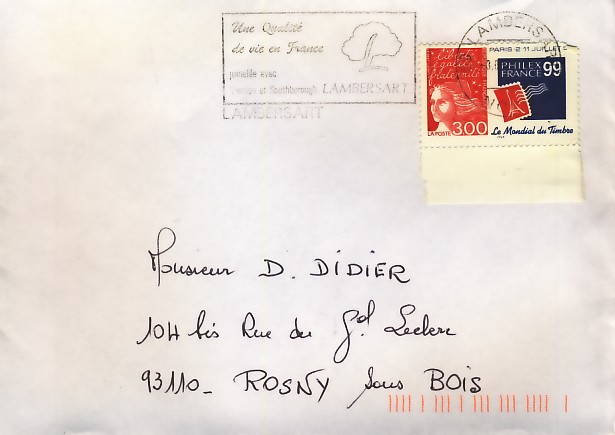 Une Qualité
de vie en France
jumelée avec
Viersen et Southborough LAMBERSART
LAMBERSART
LAMBERSART
PARIS 2 11 JUILLET
liberté
égalité
fraternité
LA POSTE 3,00
PHILEX
FRANCE 99
Le Mondial du Timbre
Monsieur D. DIDIER
104 bis Rue du Gal Leclerc
93110_ ROSNY sous BOIS